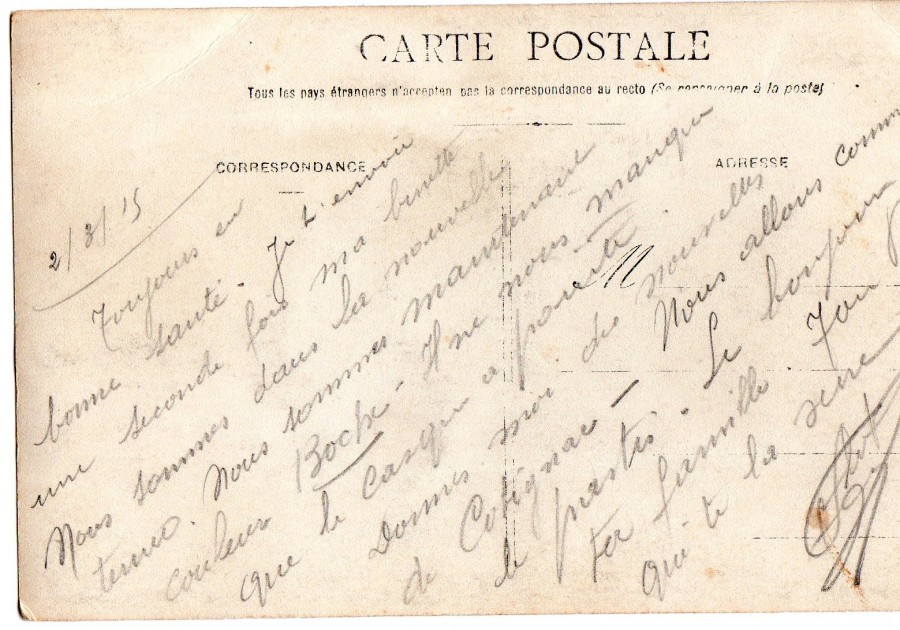 CARTE POSTALE
Tous les pays étrangers n'acceptent pas la correspondance au recto (Se renseigner à la poste)
CORRESPONDANCE
ADRESSE
2/3/15
Toujours en
bonne santé. Je t'envoie
une seconde fois ma binette
Nous sommes dans la nouvelle
tenue. Nous sommes maintenant
couleur Boche. Il ne nous manque
que le casque à pointe
Donnes moi des nouvelles
de Cotignac – Nous allons comm
le pastis. Le bonjour
ta famille. Ton
qui te la serre